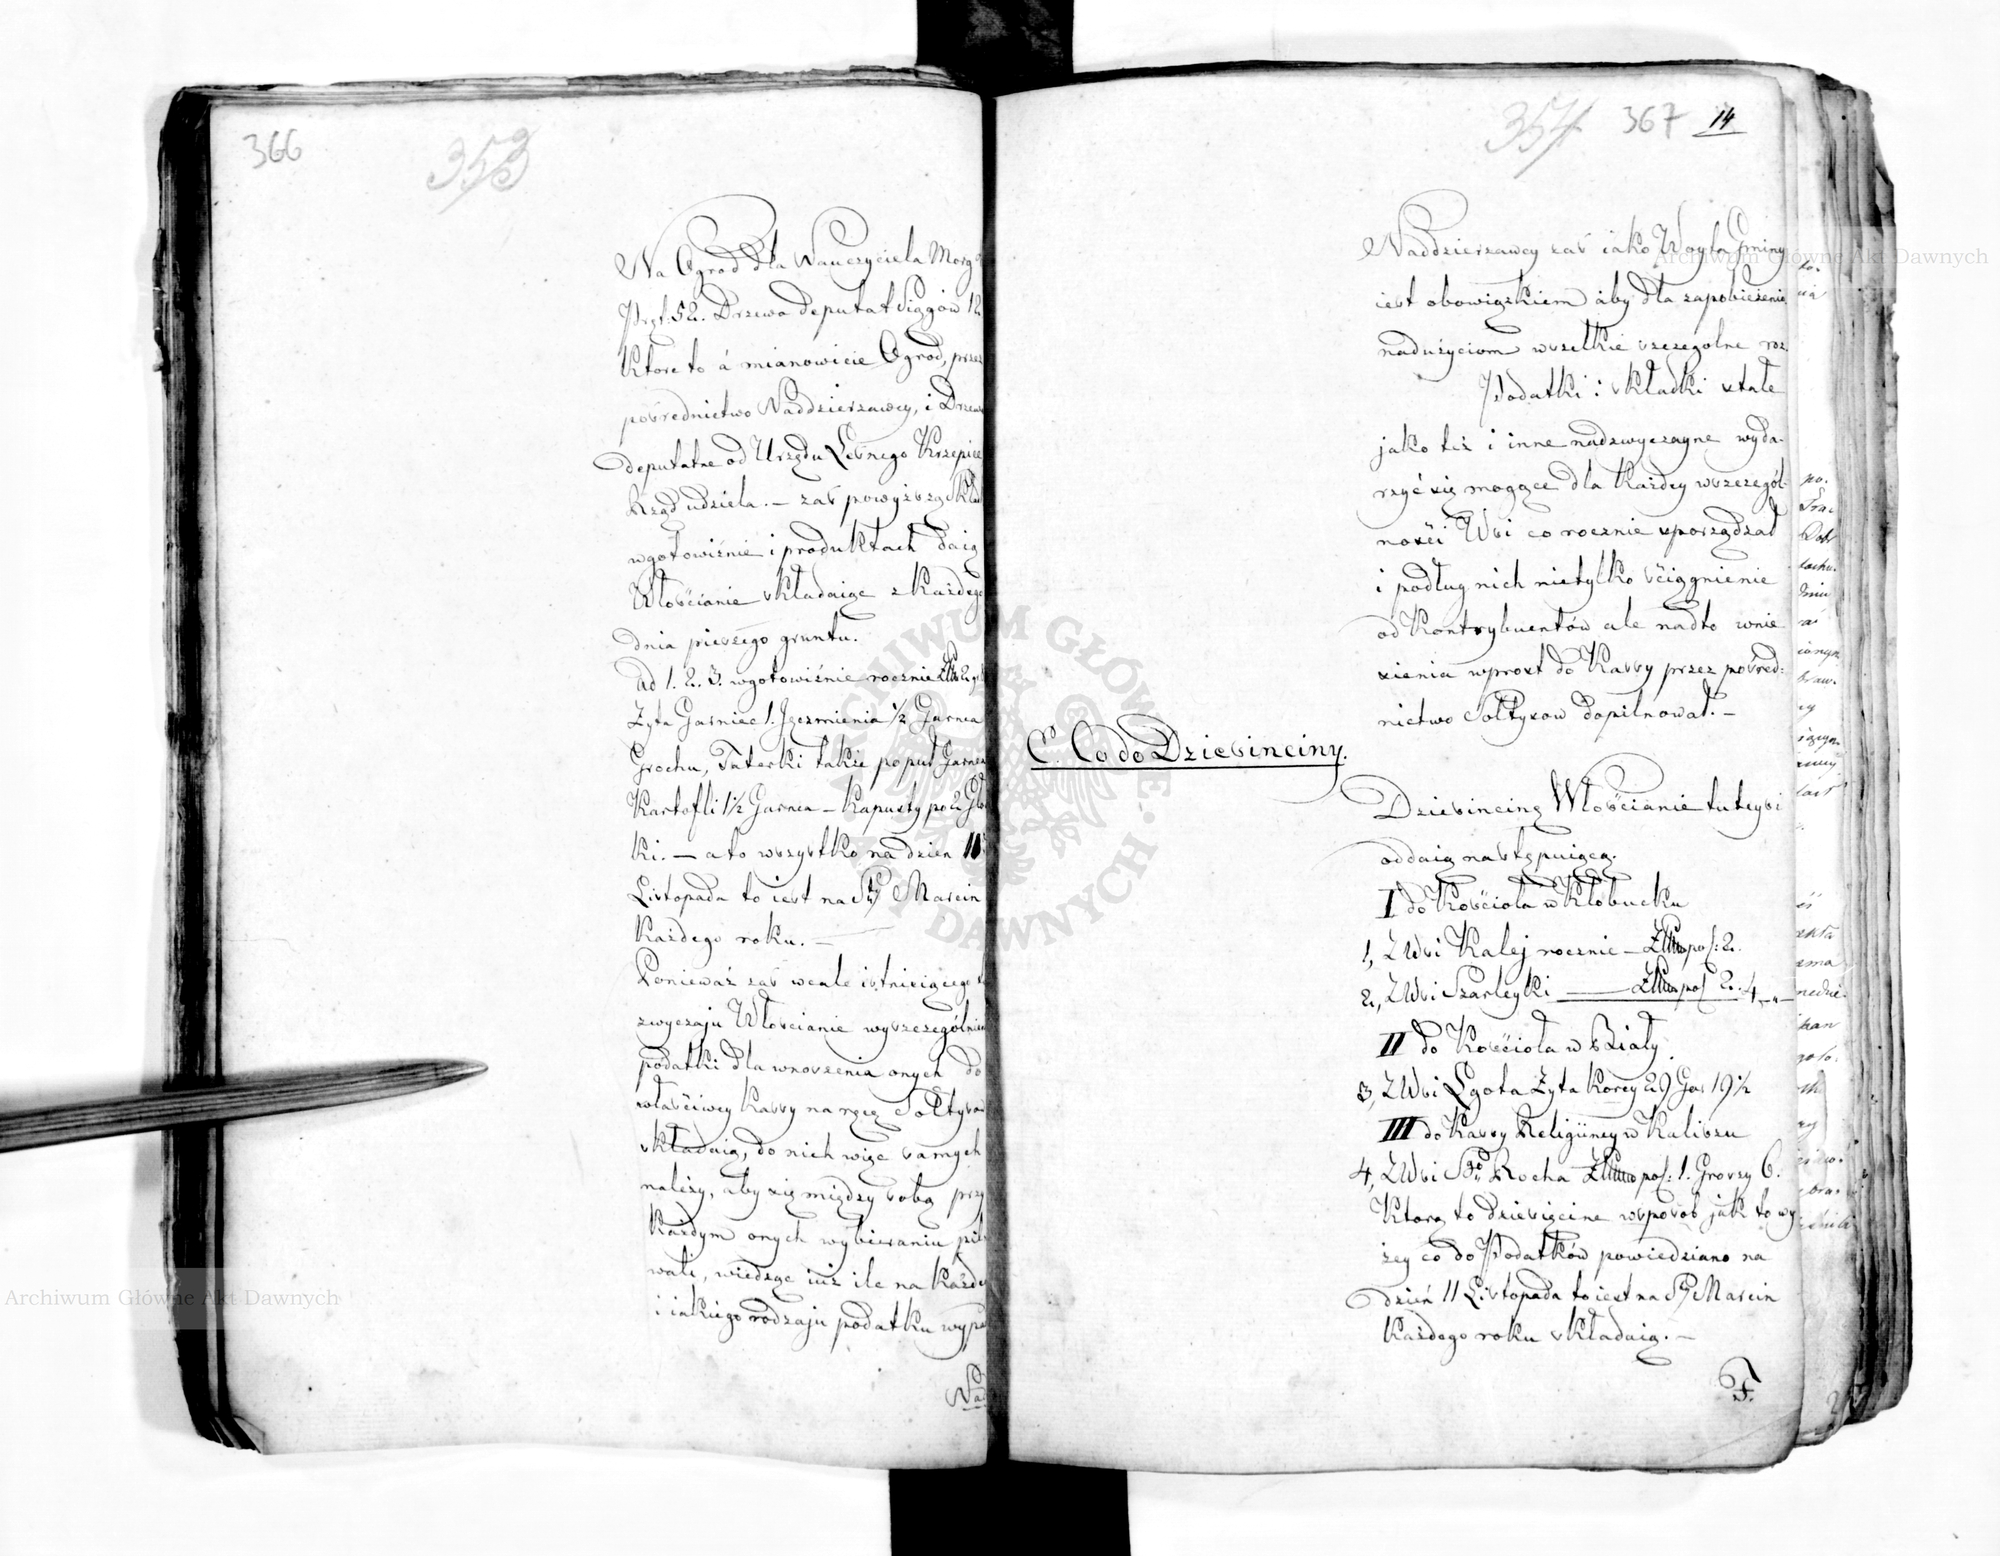 366
353
Na Ogrod dla Nauczyciela Morg
Pręt: 52. Drzewa deputat Siągów 12
Ktore to á mianowicie Ogrod, przez
posrednictwo Naddzierzawcy, i Drzewo
deputatne od Urzędu Lesnego Krzepice
Rząd udziela. — zas powyższą Skład
wgotowiźnie i produktach daią
Włościanie składaiąc z Każdego
dnia pieszego gruntu.
ad 1. 2. 3. wgotowiźnie rocznie
Zyta Garniec 1. Jęczmienia ½ Garnca
Grochu, Tatarki także po puł Garnca
Kartofli 1½ Garnca — Kapusty po 2 Głow
ki. — a to wszystko na dzien 11
Listopada to iest na Sty Marcin
Każdego roku. —
Ponieważ zas wcale istnieiącego
zwyczaju Włoscianie wyszczególnione
podatki dla wnoszenia onych do
właściwey Kassy na ręcę Sołtysow
składaią, do nich więc samych
należy, aby się między sobą przy
Każdym onych wybieraniu pilno
wali, wiedząc iuż ile na Każde
i iakiego rodzaju podatku wypa
Nad
354 367 14
Naddzierzawcy zas iako Woyta Gminy
iest obowiązkiem aby dla zapobieżenia
nadużyciom wszelkie szczegolne roz.
Podatki i składki stałe
jako też i inne nadzwyczayne wyda-
rzyć się mogące dla Każdey wszczegól-
ności Wsi co rocznie sporządzał
i podług nich nietylko ściągnienie
od Kontrybuentów ale nadto wnie
sienia wprost do Kassy przez posred-
nictwo Sołtysow dopilnował. —
C. Co do Dziesinciny.
Dziesincinę Włościanie tuteysi
oddaią następuiącą.
I do Kościoła w Kłobucku
1, Z Wsi Kalej rocznie — pos: 2.
2, Z Wsi Szarleyki — pos 2. 4 „ —
II do Kościoła w Biały.
3, Z Wsi Lgota Zyta Korcy 29 Gar 19½
III do Kassy Religiiney w Kaliszu
4, Z Wsi Sgo Rocha pos: 1. Groszy 6.
Ktorą to dziesięcine wsposob jak to wy
żey co do Podatków powiedziano na
dzień 11 Listopada to iest na Sty Marcin
Każdego roku składaią. —
Archiwum Główne Akt Dawnych
Archiwum Główne Akt Dawnych
ARCHIWUM GŁÓWNE AKT DAWNYCH